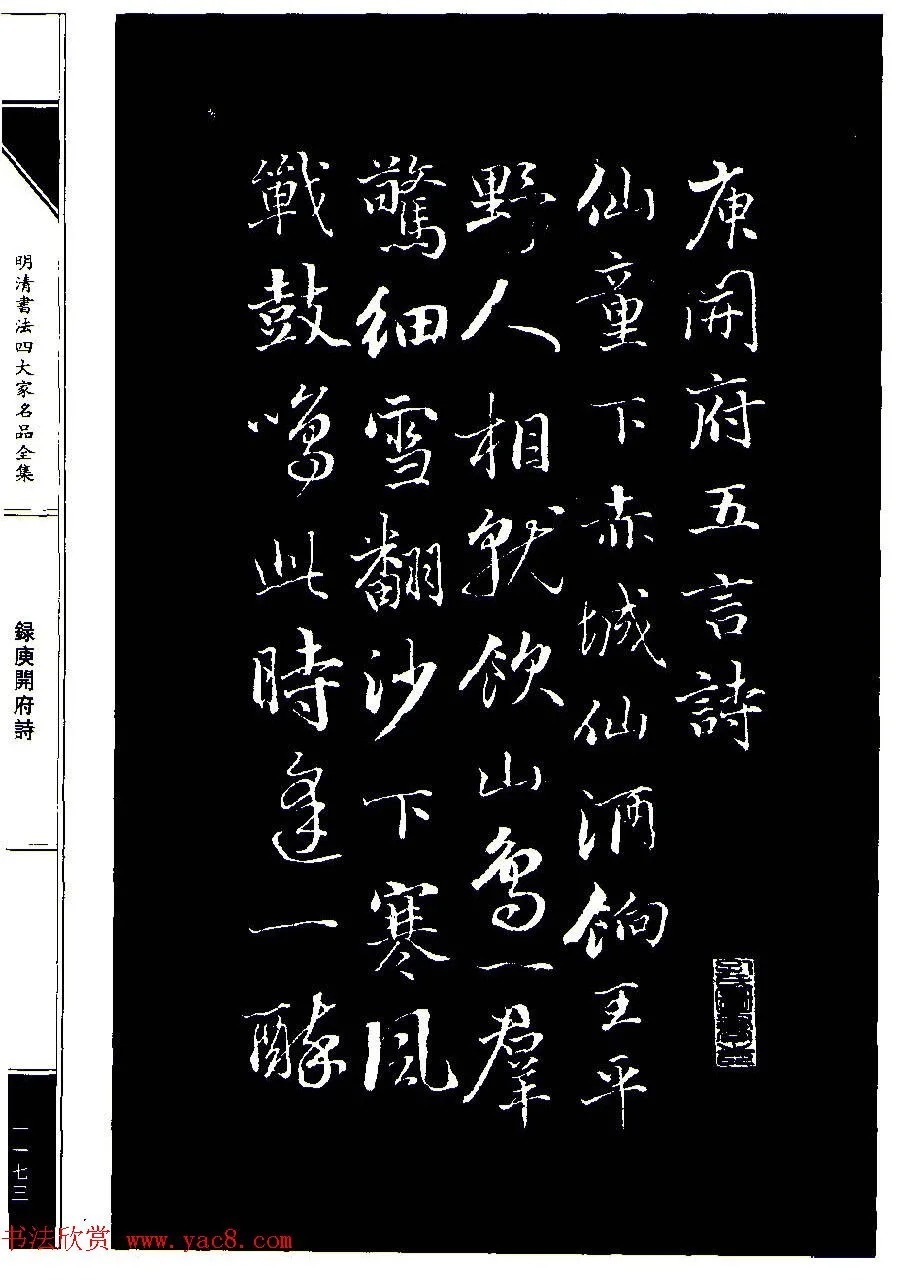 庾開府五言詩
仙童下赤城仙酒餉王平
野人相就飲山鳥一羣
驚細雪翻沙下寒風
戰鼓鳴此時逢一醉
明清書法四大家名品全集
録庾開府詩
一一七三
书法欣赏 www.yac8.com